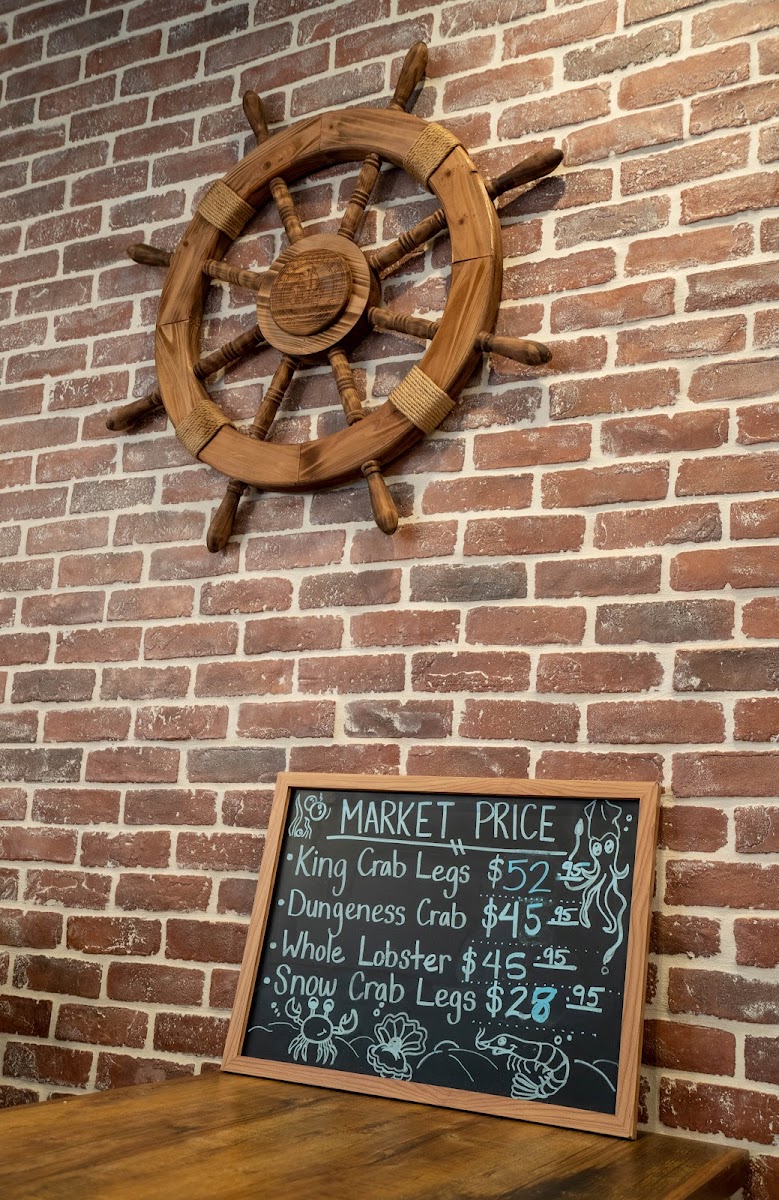 MARKET PRICE
• King Crab Legs $52.95
• Dungeness Crab $45.95
• Whole Lobster $45.95
• Snow Crab Legs $28.95